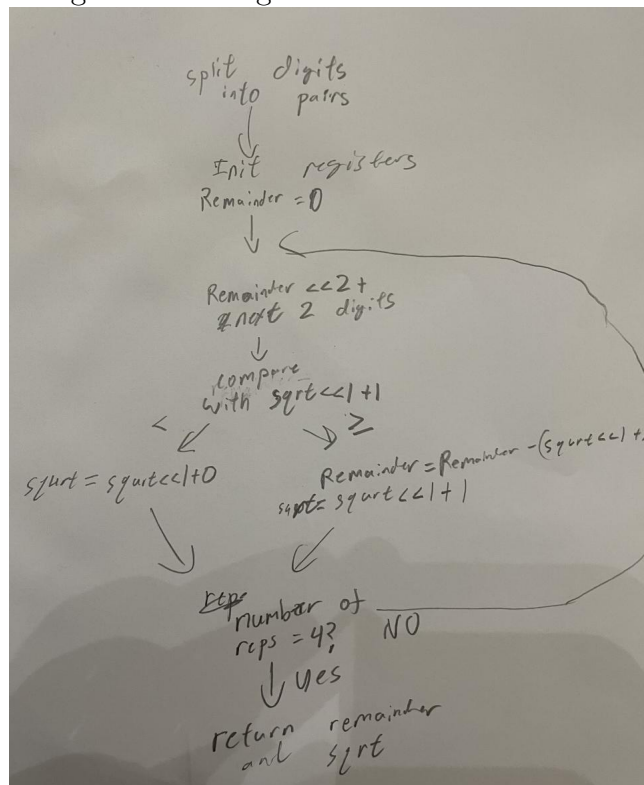 split digits
into pairs
Init registers
Remainder = 0
Remainder <<2 +
next 2 digits
compare
with sqrt<<1 +1
< ≥
squrt = squrt<<1+0
Remainder = Remainder - (squrt<<1 +
sqrt = squrt<<1 +1
number of
reps = 4?
NO
yes
return remainder
and sqrt